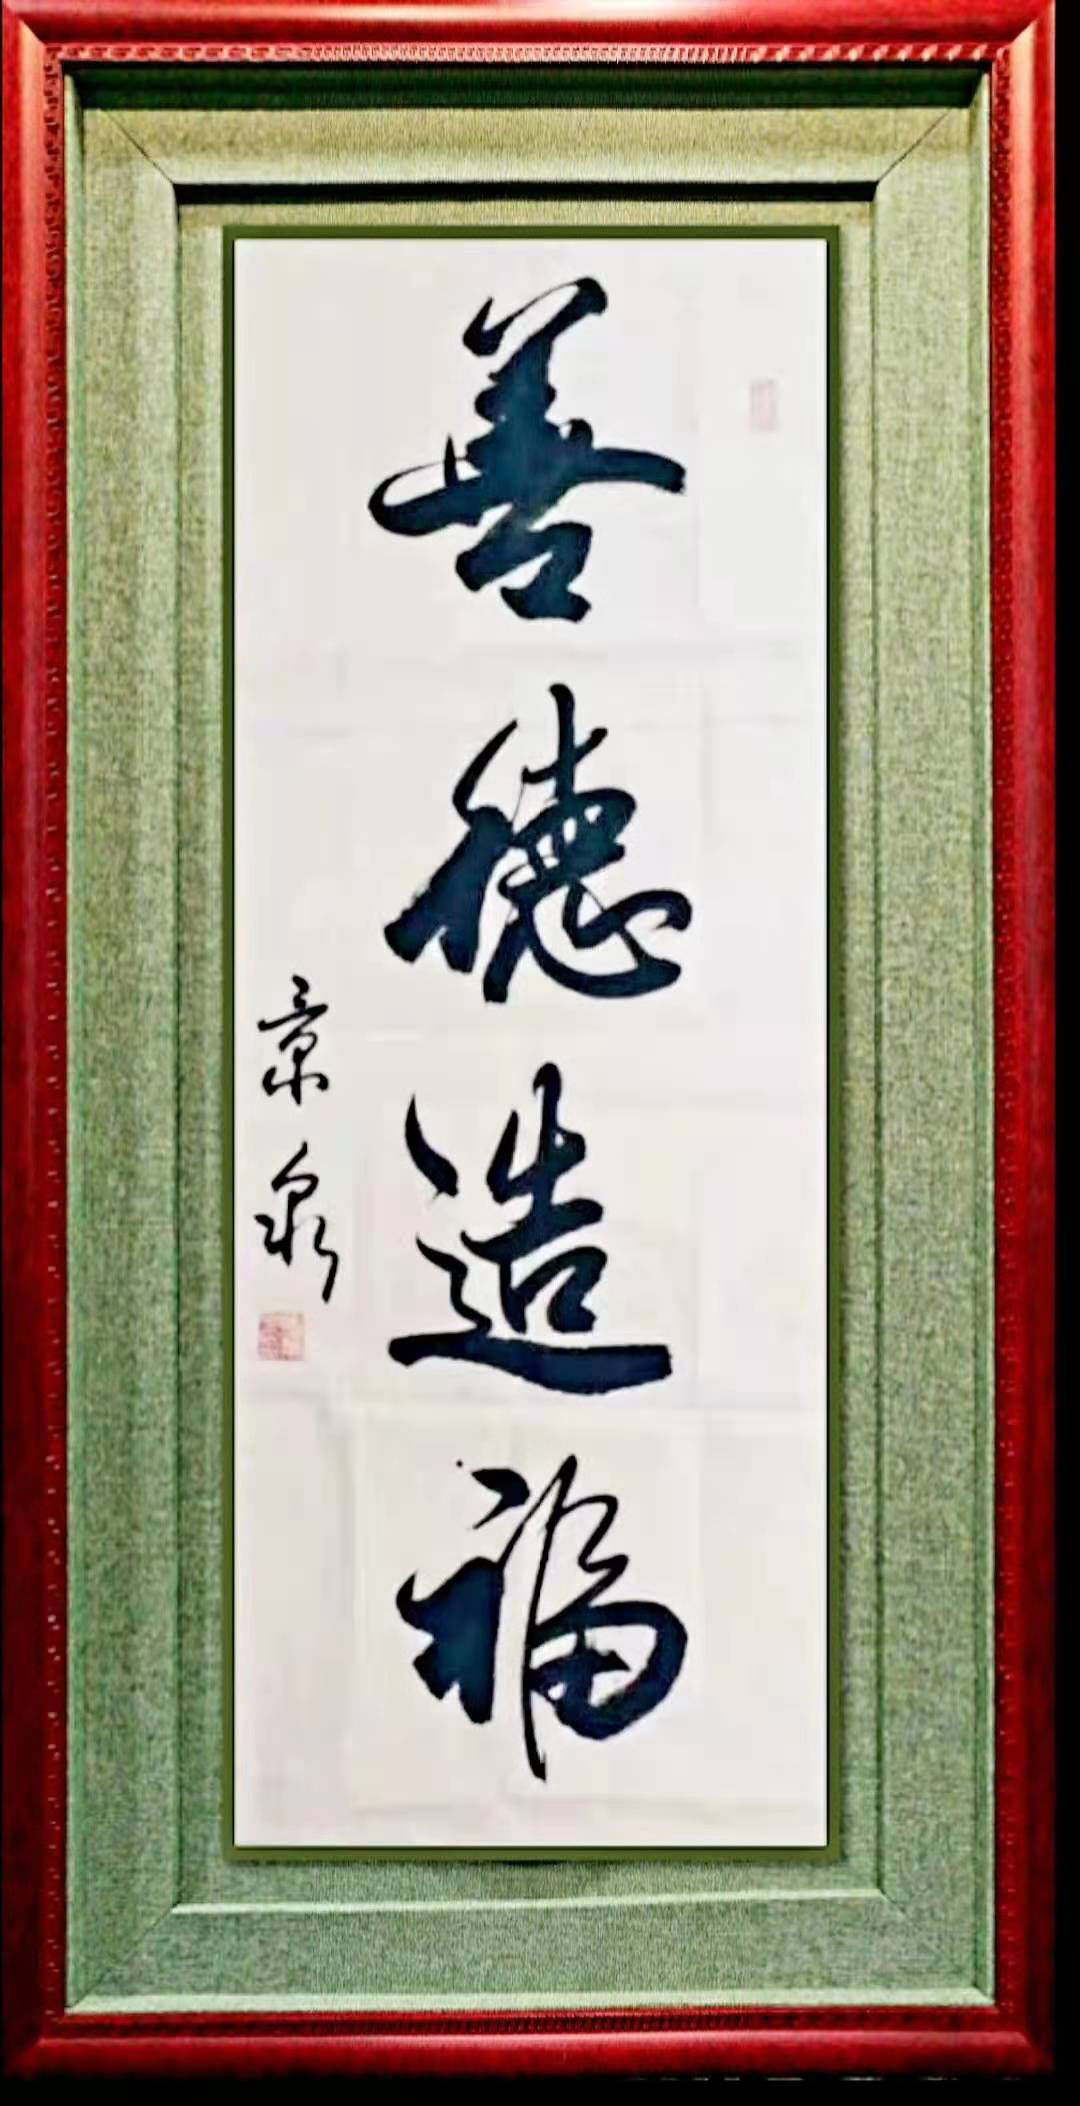 善德造福
景泉